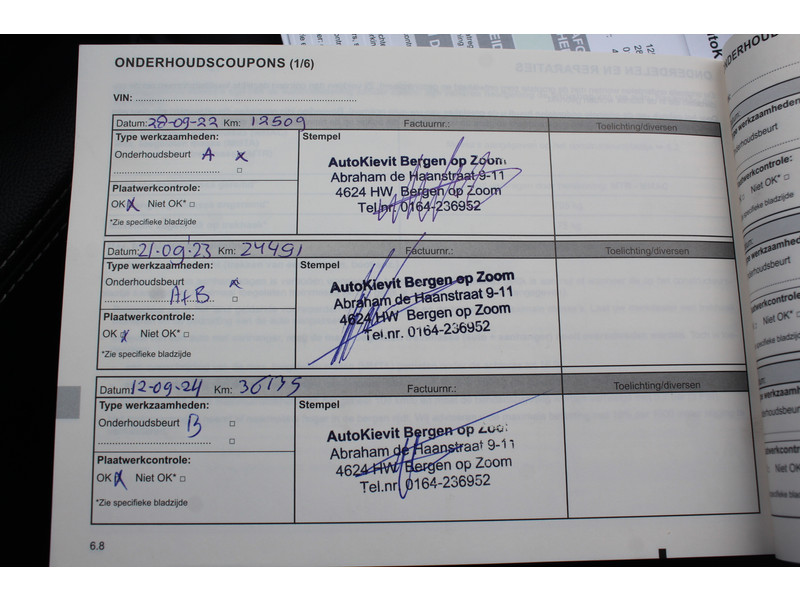 ONDERHOUDSCOUPONS (1/6)
VIN: ....................
Datum: 28-09-22 Km: 12509 Factuurnr.: Toelichting/diversen
Type werkzaamheden: Stempel
Onderhoudsbeurt A x
AutoKievit Bergen op Zoom
Abraham de Haanstraat 9-11
4624 HW, Bergen op Zoom
Tel.nr. 0164-236952
Plaatwerkcontrole:
OK X Niet OK*
*Zie specifieke bladzijde
Datum: 21-09-'23 Km: 24491 Factuurnr.: Toelichting/diversen
Type werkzaamheden: Stempel
Onderhoudsbeurt x
A+B
AutoKievit Bergen op Zoom
Abraham de Haanstraat 9-11
4624 HW Bergen op Zoom
Tel.nr. 0164-236952
Plaatwerkcontrole:
OK x Niet OK*
*Zie specifieke bladzijde
Datum: 12-09-24 Km: 36135 Factuurnr.: Toelichting/diversen
Type werkzaamheden: Stempel
Onderhoudsbeurt B
AutoKievit Bergen op Zoom
Abraham de Haanstraat 9-11
4624 HW Bergen op Zoom
Tel.nr. 0164-236952
Plaatwerkcontrole:
OK X Niet OK*
*Zie specifieke bladzijde
6.8